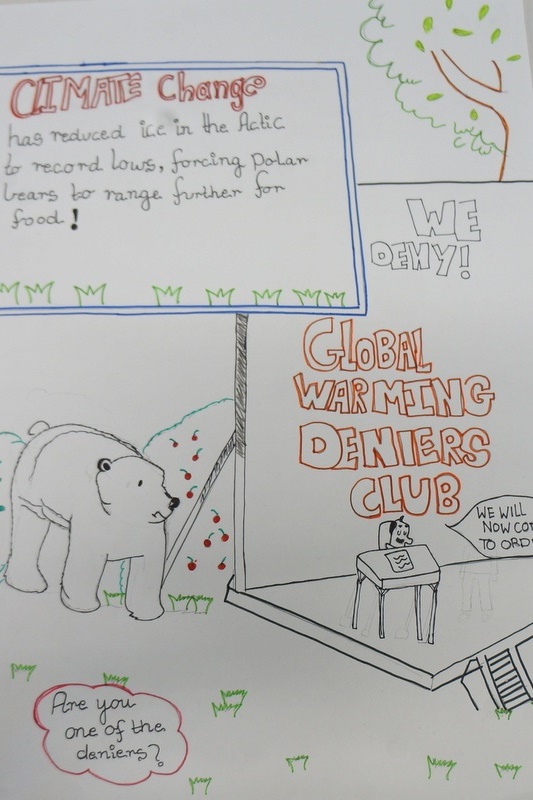 CLIMATE Change
has reduced ice in the Actic
to record lows, forcing polar
bears to range further for
food!
WE
DENY!
GLOBAL
WARMING
DENIERS
CLUB
WE WILL
NOW
TO
Are you
one of the
deniers?